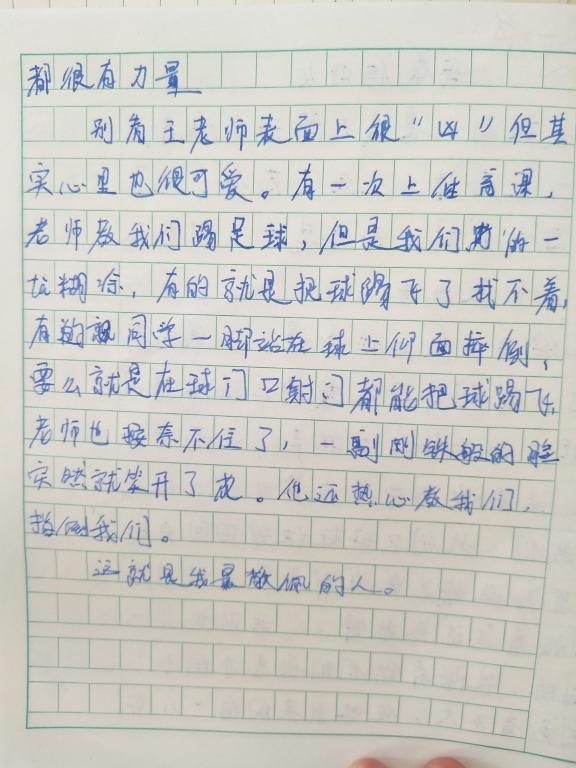 都很有力量
别看王老师表面上很“凶”但其
实心里也很可爱。有一次上体育课，
老师教我们踢足球，但是我们踢的一
糊涂，有的就是把球踢飞了找不着，
有的同学一脚站在球上仰面摔倒，
要么就是在球门口射门都能把球踢飞，
老师也按奈不住了，一副刚铁般的脸
突然就笑开了花。他还热心教我们，
指倒我们。
这就是我最敬佩的人。